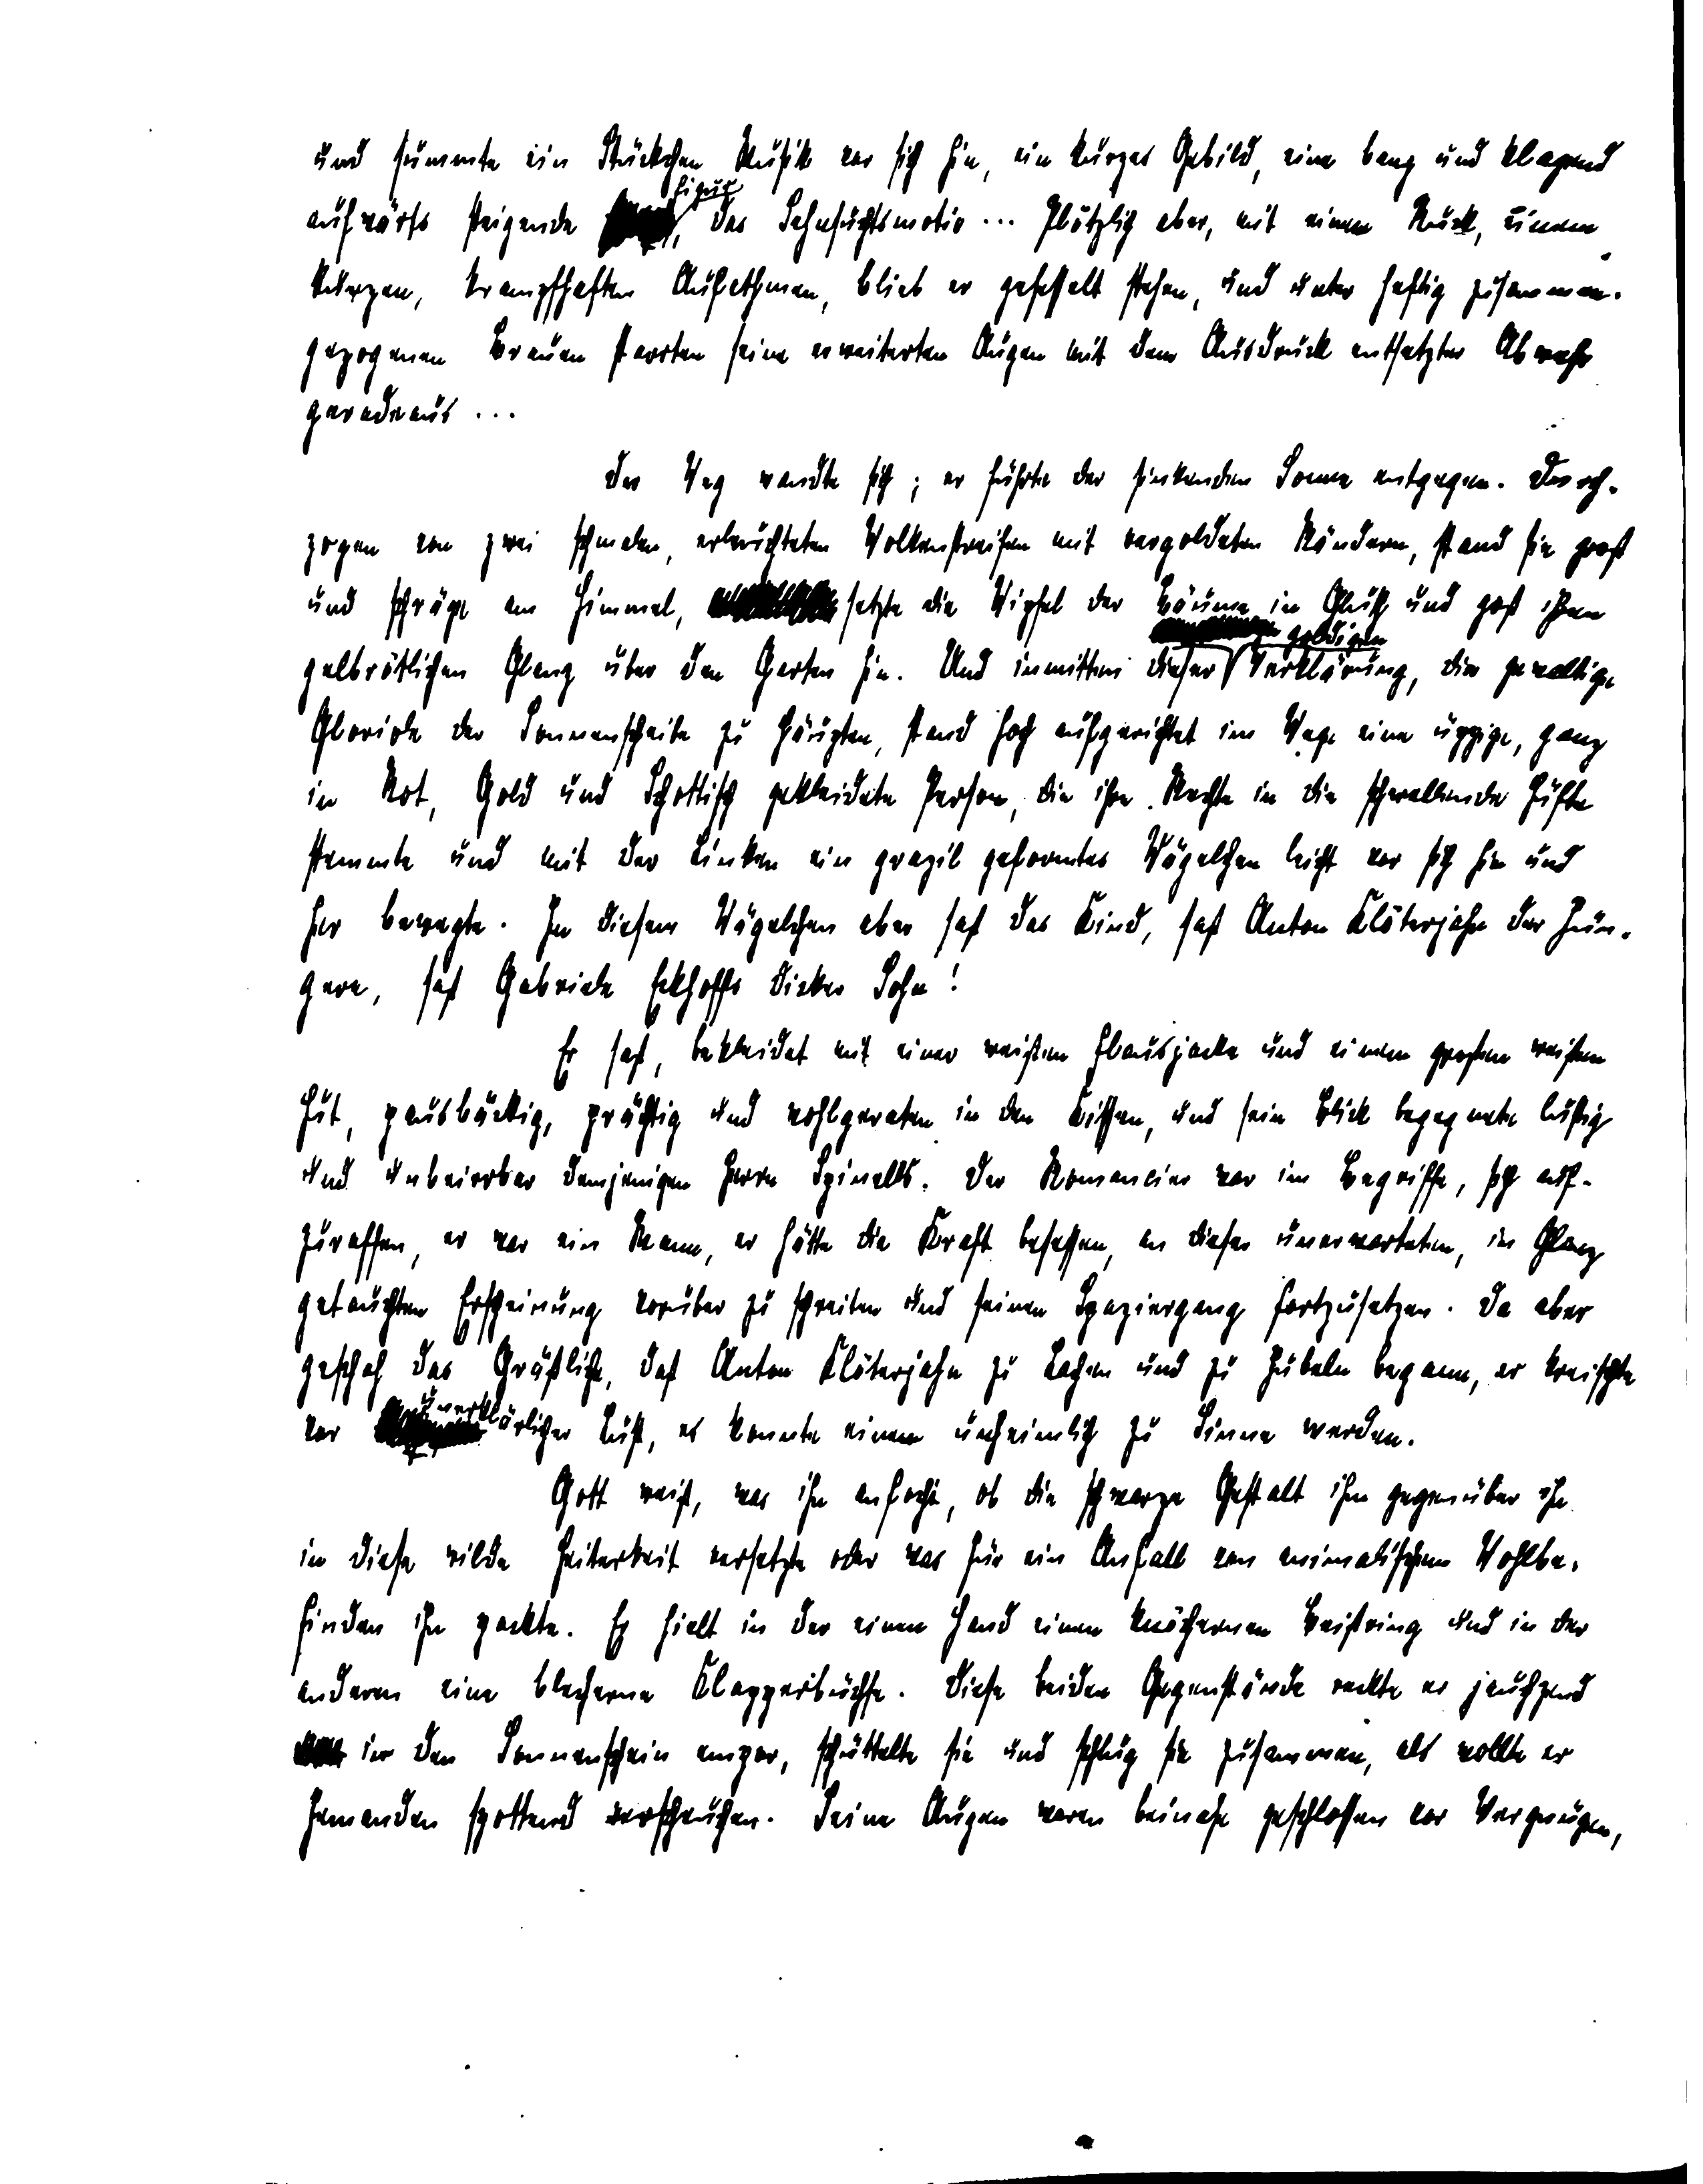 und summte ein Stückchen Musik vor sich hin, ein kurzes Gebild, eine bang und klagend
aufwärts steigende Figur, das Sehnsuchtsmotiv ... Plötzlich aber, mit einem Ruck, einem
kurzen, krampfhaften Aufathmen, blieb er gefesselt stehen, und unter heftig zusammen-
gezogenen Brauen starrten seine erweiterten Augen mit dem Ausdruck entsetzter Abwehr
geradeaus ...
Der Weg wandte sich; er führte der sinkenden Sonne entgegen. Durch-
zogen von zwei schmalen, erleuchteten Wolkenstreifen mit vergoldeten Rändern, stand sie groß
und schräge am Himmel, setzte die Wipfel der Bäume in Gluth und goß ihren
gelbrötlichen Glanz über den Garten hin. Und inmitten dieser goldigen Verklärung, die gewaltige
Gloriole der Sonnenscheibe zu Häupten, stand hoch aufgerichtet im Wege eine üppige, ganz
in Rot, Gold und Schottisch gekleidete Person, die ihre Rechte in die schwellende Hüfte
stemmte und mit der Linken ein grazil geformtes Wägelchen leicht vor sich hin und
her bewegte. In diesem Wägelchen aber saß das Kind, saß Anton Klöterjahn der Jün-
gere, saß Gabriele Eckhoffs dicker Sohn!
Er saß, bekleidet mit einer weißen Flausjacke und einem großen weißen
Hut, pausbäckig, prächtig und wohlgeraten in den Kissen, und sein Blick begegnete lustig
und unbeirrbar demjenigen Herrn Spinells. Der Romancier war im Begriffe, sich auf-
zuraffen, er war ein Mann, er hätte die Kraft besessen, an dieser unerwarteten, in Glanz
getauchten Erscheinung vorüber zu schreiten und seinen Spaziergang fortzusetzen. Da aber
geschah das Gräßliche, daß Anton Klöterjahn zu Lachen und zu Jubeln begann, er kreischte
vor unerklärlicher Lust, es konnte einem unheimlich zu Sinne werden.
Gott weiß, was ihn anfocht, ob die schwarze Gestalt ihm gegenüber ihn
in diese wilde Heiterkeit versetzte oder was für ein Anfall von animalischem Wohlbe-
finden ihn packte. Er hielt in der einen Hand einen knöchernen Beißring und in der
anderen eine blecherne Klapperbüchse. Diese beiden Gegenstände reckte er jauchzend
in den Sonnenschein empor, schüttelte sie und schlug sie zusammen, als wollte er
Jemanden spottend verscheuchen. Seine Augen waren beinahe geschlossen vor Vergnügen,